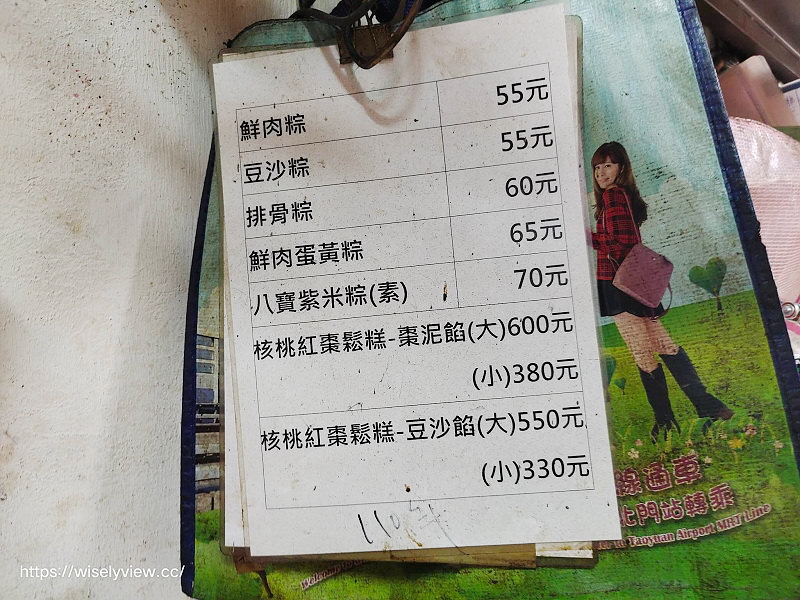 鮮肉粽 55元
豆沙粽 55元
排骨粽 60元
鮮肉蛋黃粽 65元
八寶紫米粽(素) 70元
核桃紅棗鬆糕-棗泥餡(大)600元
(小)380元
核桃紅棗鬆糕-豆沙餡(大)550元
(小)330元
110年
線通車
北門站轉乘
Taoyuan Airport MRT Line
Welcome to
https://wiselyview.cc/